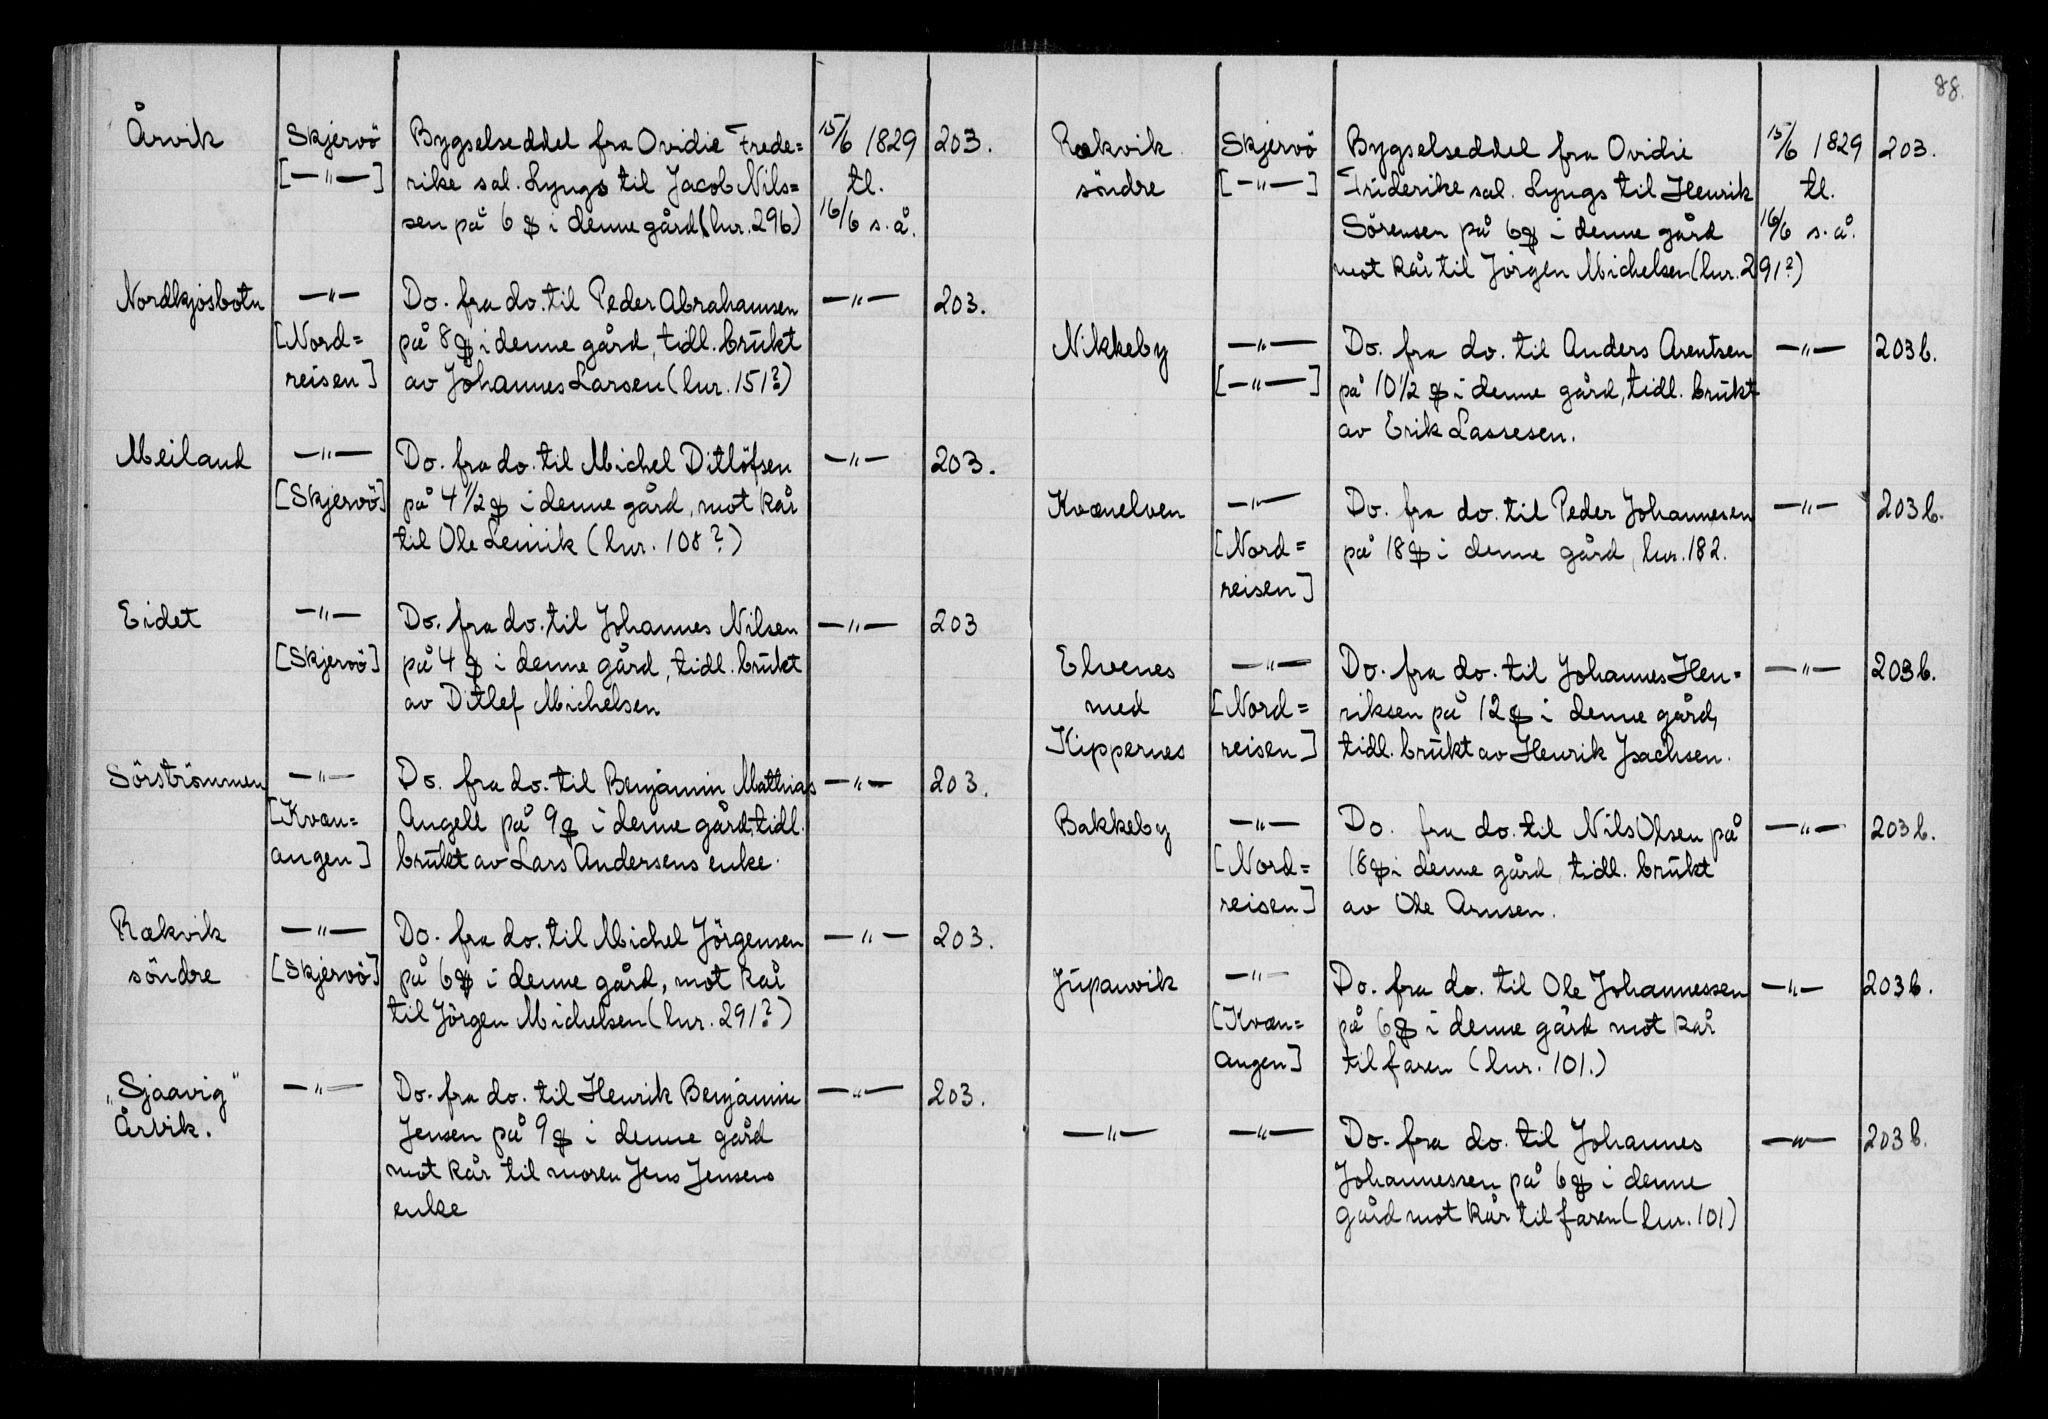 88.
Årvik
Skjervö
[—"—]
Bygselseddel fra Ovidie Frede=
rike sal. Lyngs til Jacob Nils=
sen på 6 ℔ i denne gård (lnr. 296)
15/6 1829
tl.
16/6 s. å.
203.
Nordkjosbotn
—"—
[Nord=
reisen]
Do. fra do. til Peder Abrahamsen
på 8 ℔ i denne gård, tidl. brukt
av Johannes Larsen (lnr. 151?)
—"—
203.
Meiland
—"—
[Skjervö]
Do. fra do. til Michel Ditlöfsen
på 4 1/2 ℔ i denne gård, mot kår
til Ole Leinik (lnr. 108?)
—"—
203.
Eidet
—"—
[Skjervö]
Do. fra do. til Johannes Nilsen
på 4 ℔ i denne gård, tidl. brukt
av Ditlef Michelsen
—"—
203
Sörströmmen
—"—
[Kvæn=
angen]
Do. fra do. til Benjamin Matthias
Angell på 9 ℔ i denne gård, tidl.
brukt av Lars Andersens enke.
—"—
203.
Rækvik
söndre
—"—
[Skjervö]
Do. fra do. til Michel Jörgensen
på 6 ℔ i denne gård, mot kår
til Jörgen Michelsen (lnr. 291?)
—"—
203.
„Sjaavig"
Årvik.
—"—
Do. fra do. til Henrik Benjamin
Jensen på 9 ℔ i denne gård
mot kår til moren Jens Jensens
enke
—"—
203.
Rækvik
söndre
Skjervö
[—"—]
Bygselseddel fra Ovidie
Friderike sal. Lyngs til Henrik
Sörensen på 6 ℔ i denne gård
mot kår til Jörgen Michelsen (lnr. 291?)
15/6 1829
tl.
16/6 s. å.
203.
Nikkeby
—"—
[—"—]
Do. fra do. til Anders Arentsen
på 10 1/2 ℔ i denne gård, tidl. brukt
av Erik Lassesen.
—"—
203 b.
Kvænelven
—"—
[Nord=
reisen]
Do. fra do. til Peder Johannesen
på 18 ℔ i denne gård, lnr. 182.
—"—
203 b.
Elvenes
med
Kippernes
—"—
[Nord=
reisen]
Do. fra do. til Johannes Hen=
riksen på 12 ℔ i denne gård,
tidl. brukt av Henrik Isachsen.
—"—
203 b.
Bakkeby
—"—
[Nord=
reisen]
Do. fra do. til Nils Olsen på
18 ℔ i denne gård, tidl. brukt
av Ole Arnsen.
—"—
203 b.
Jupanvik
—"—
[Kvæn=
angen]
Do. fra do. til Ole Johannessen
på 6 ℔ i denne gård mot kår
til faren (lnr. 101.)
—"—
203 b.
—"—
—"—
Do. fra do. til Johannes
Johannessen på 6 ℔ i denne
gård mot kår til faren (lnr. 101)
—"—
203 b.